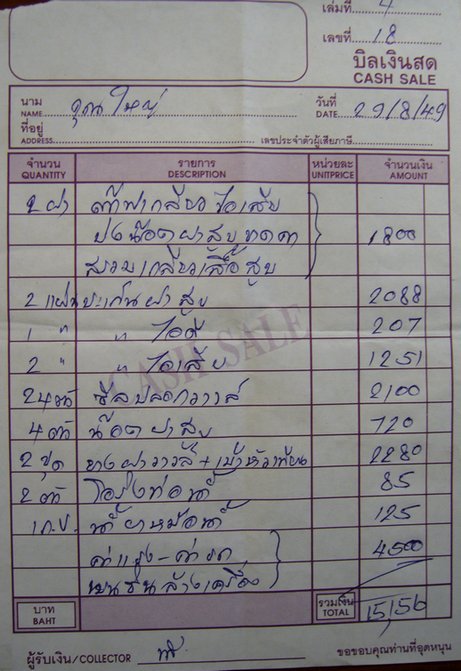 เล่มที่ 4
เลขที่ 18
บิลเงินสด
CASH SALE
นาม คุณใหญ่ วันที่ 29/8/49
NAME DATE
ที่อยู่
ADDRESS เลขประจำตัวผู้เสียภาษี
จำนวน รายการ หน่วยละ จำนวนเงิน
QUANTITY DESCRIPTION UNITPRICE AMOUNT
2 ฝา ต๊าฟเกลียวไอเสีย
น๊อตฝาสูบขาดคา 1800
สวมเกลียวเสื้อสูบ
2 แผ่น ประเก็นฝาสูบ 2088
1 " " ไอดี 207
2 " " ไอเสีย 1251
24 ตัว ซีลปลอกวาวล์ 2100
4 ตัว น๊อตฝาสูบ 720
2 ชุด ยางฝาวาวล์ + เบ้าหัวเทียน 2280
2 ตัว โอริงท่อน้ำ 85
1 ก.ป. น้ำยาหม้อน้ำ 125
ค่าแรง - ค่ารถ 4500
เบนซินล้างเครื่อง
CASH SALE
บาท รวมเงิน 15,156
BAHT TOTAL
ผู้รับเงิน/COLLECTOR ขอขอบคุณท่านที่อุดหนุน